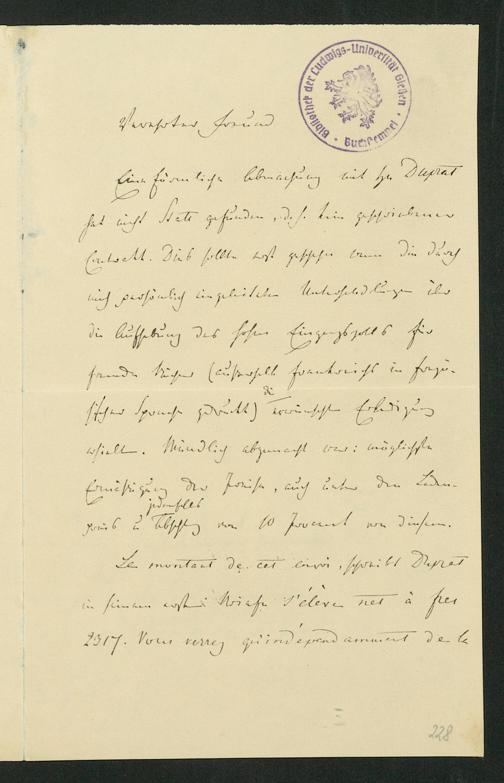 Bibliothek der Ludwigs-Universität Gießen
Buchstempel
Verehrter Freund
Eine förmliche Abmachung mit H Duprat
hat nicht Statt gefunden, d.h. kein geschriebener
Contrakt. Dies sollte erst geschehen wenn die durch
mich persönlich eingeleiteten Unterhandlungen über
die Aufhebung des hohen Eingangszolls für
fremde Bücher (außerhalb Frankreichs in franzö-
sischer Sprache gedruckt) die erwünschte Erledigung
erhielten. Mündlich abgemacht war: möglichste
Ermäßigung der Preise, auch unter den Laden-
preis u jedenfalls Abschlag von 10 Procent von diesem.
Le montant de cet envoi, schreibt Duprat
in seinem ersten Briefe s'élève net à frcs
2317. Vous verrez qu'indépendamment de la
228